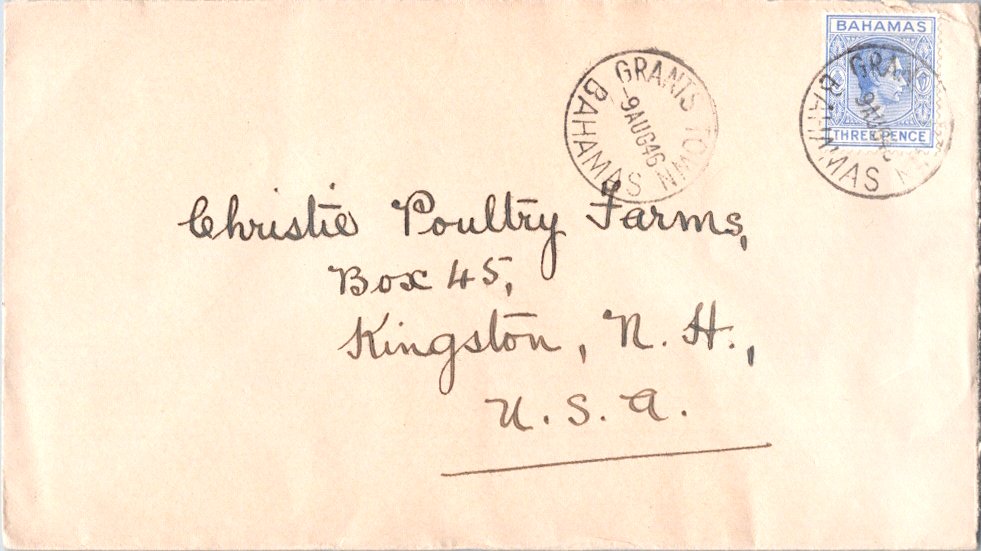 BAHAMAS
THREE PENCE
GRANTS TOWN
-9AUG46
BAHAMAS
GRANTS
BAHAMAS
Christie Poultry Farms,
Box 45,
Kingston, N. H.,
U. S. A.